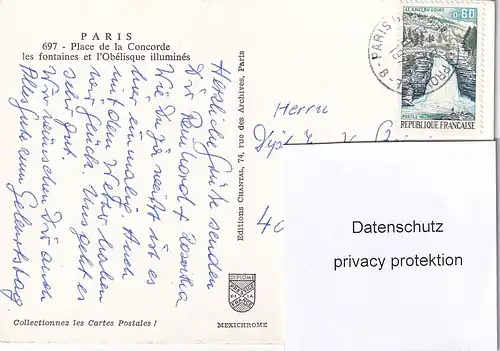 PARIS
697 - Place de la Concorde
les fontaines et l'Obélisque illuminés
Herzliche Grüße senden
Dir Reinhard + Roswitha
Wie Du ja weißt ist es
hier einmalig. Auch
mit dem Wetter haben
wir Glück. Uns geht es
sehr gut.
Wir wünschen Dir auch
Alles Gute zum Geburtstag.
Editions CHANTAL, 74, rue des Archives, Paris
Collectionnez les Cartes Postales !
DIPLOME
PRESTIGE
DE LA
FRANCE
MEXICHROME
LE SAUT DU DOUBS
0,60
POSTES
REPUBLIQUE FRANÇAISE
PARIS
Herrn
40
Datenschutz
privacy protektion